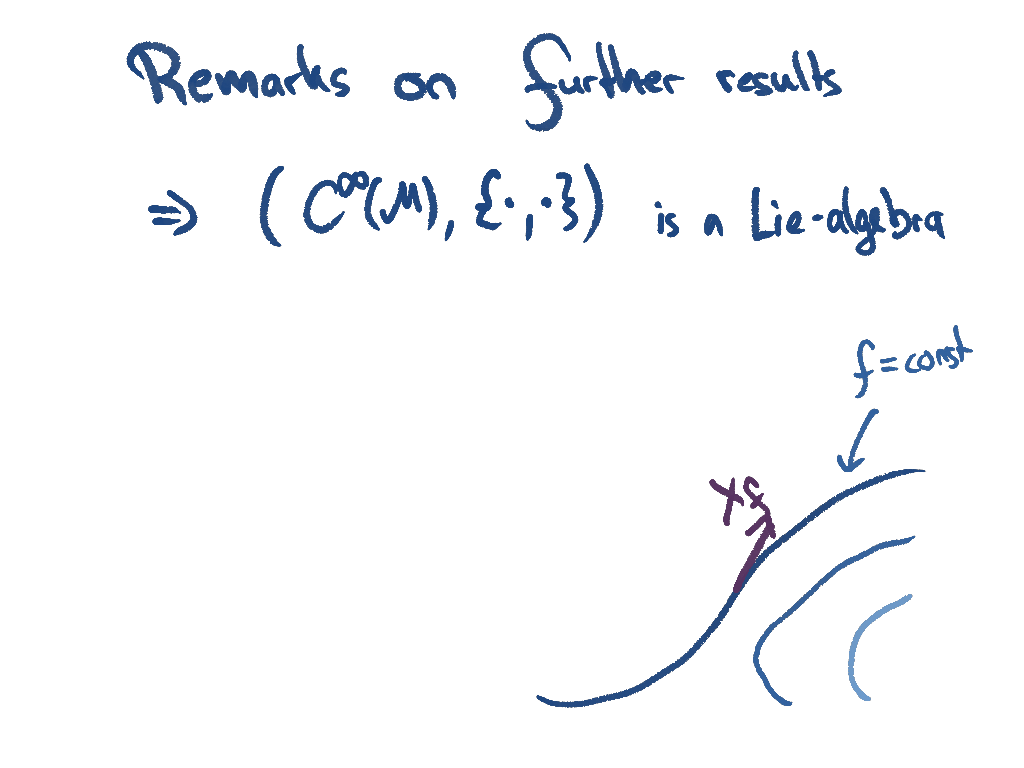 Remarks on further results
⇒ (C^∞(M), {·,·}) is a Lie-algebra
f = const
X_f